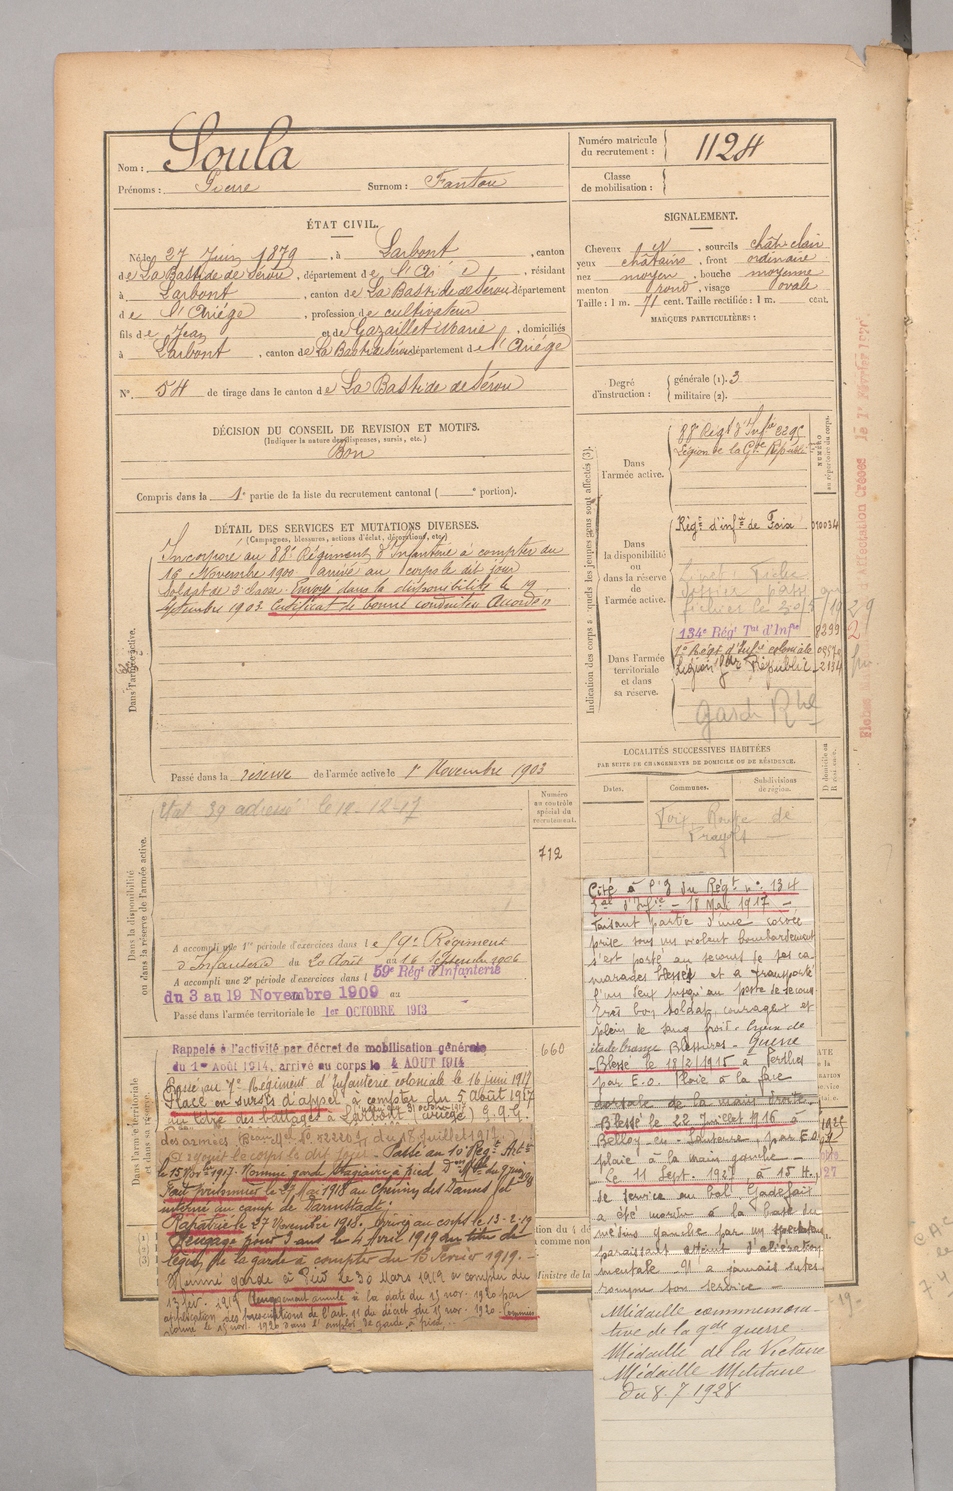 Nom : Soula
Prénoms : Pierre Surnom : Fantou
Numéro matricule
du recrutement : 1124
Classe
de mobilisation :
ÉTAT CIVIL.
Né le 27 Juin 1879, à Larbont, canton
de La Bastide de Sérou, département de l'Ariège, résidant
à Larbont, canton de La Bastide de Sérou département
de l'Ariège, profession de cultivateur
fils de Jean et de Gazaillet Marie, domiciliés
à Larbont, canton de La Bastide de Sérou département de l'Ariège
N° 54 de tirage dans le canton de La Bastide de Sérou
SIGNALEMENT.
Cheveux et, sourcils chât. clair
yeux châtains, front ordinaire
nez moyen, bouche moyenne
menton rond, visage ovale
Taille : 1 m. 71 cent. Taille rectifiée : 1 m. cent.
MARQUES PARTICULIÈRES :
Degré
d'instruction :
générale (1). 3
militaire (2).
DÉCISION DU CONSEIL DE REVISION ET MOTIFS.
(Indiquer la nature des dispenses, sursis, etc.)
Bon
Compris dans la 1e partie de la liste du recrutement cantonal ( e portion).
DÉTAIL DES SERVICES ET MUTATIONS DIVERSES.
(Campagnes, blessures, actions d'éclat, décorations, etc.)
Dans l'armée active.
Incorporé au 88e Régiment d'Infanterie à compter du
16 Novembre 1900 arrivé au corps le dit jour
Soldat de 2e classe. Envoyé dans la disponibilité le 19
septembre 1903 Certificat de bonne conduite Accordé
Passé dans la réserve de l'armée active le 1er Novembre 1903
Indication des corps auxquels les jeunes gens sont affectés (3).
NUMÉRO
au répertoire du corps.
Dans
l'armée active.
88e Régt d'Infie
Légion de la Gde Républi
Dans
la disponibilité
ou
dans la réserve
de
l'armée active.
Régt d'infie de Foix
Dans l'armée
territoriale
et dans
sa réserve.
134e Régt Tal d'Infie 8299
7e Régt d'Infie coloniale
Légion Gde Républi 2134
Garde Rle
Fiches Affectation Créées le 1er Février 19
LOCALITÉS SUCCESSIVES HABITÉES
PAR SUITE DE CHANGEMENTS DE DOMICILE OU DE RÉSIDENCE.
Dates. Communes. Subdivisions
de région.
Foix Route de
Prayols
Dans la disponibilité
ou dans la réserve de l'armée active.
Etat 39 adressé le 12-12-17
Numéro
au contrôle
spécial du
recrutement.
712
A accompli une 1re période d'exercices dans le 59e Régiment
d'Infanterie du 20 Août au 16 Septembre 1906
A accompli une 2e période d'exercices dans l 59e Régt d'Infanterie
du 3 au 19 Novembre 1909 au
Passé dans l'armée territoriale le 1er OCTOBRE 1913
Dans l'armée territoriale
et dans sa réserve.
660
Rappelé à l'activité par décret de mobilisation générale
du 1er Août 1914, arrivé au corps le 4 AOUT 1914
Passé au 7e Régiment d'Infanterie coloniale le 16 juin 1917
Placé en sursis d'appel à compter du 5 Août 1917
au titre des battages à Larbont (Ariège) G.Q.G.
des armées, Beau du 18 Juillet 1917
Passé au 10e Régt Artie
le 15 Novbre 1917. Nommé garde Stagiaire à pied
Fait prisonnier le 27 Mai 1918 au Chemin des Dames
interné au camp de Darmstadt
Rapatrié le 27 Novembre 1918. arrivé au corps le 13-2-19
Rengagé pour 3 ans le 4 Avril 1919 au titre de
légion de la garde à compter du 13 Février 1919.
Nommé garde à pied le 30 Mars 1919 à compter du
13 fév. 1919 Rengagement annulé à la date du 15 nov. 1920 par
application des prescriptions de l'art. 11 du décret du 15 nov. 1920. Commissionné
le 15 nov. 1920 dans l'emploi de garde à pied
Cité à l'O du Régt n° 134
Tal d'Infie - 18 Mai 1917 -
Faisant partie d'une corvée
prise sous un violent bombardement
s'est porté au secours de ses ca-
marades blessés et a transporté
l'un d'eux jusqu'au poste de secours
Très bon soldat, courageux et
plein de sang froid. Croix de
Guerre
étoile bronze Blessures -
Blessé le 18/2/1915 à Perthes
par E.O. Plaie à la face
dorsale de la main droite.
Blessé le 22 Juillet 1916 à
Belloy-en-Santerre, par E.O.
plaie à la main gauche -
Le 11 Sept. 1927, à 15 H,
de service au bal
a été mordu à la base du
médius gauche par un spectateur
paraissant atteint d'aliénation
mentale. N'a jamais inter-
rompu son service -
Médaille commémora-
tive de la gde guerre
Médaille de la Victoire
Médaille Militaire
du 8.7.1928